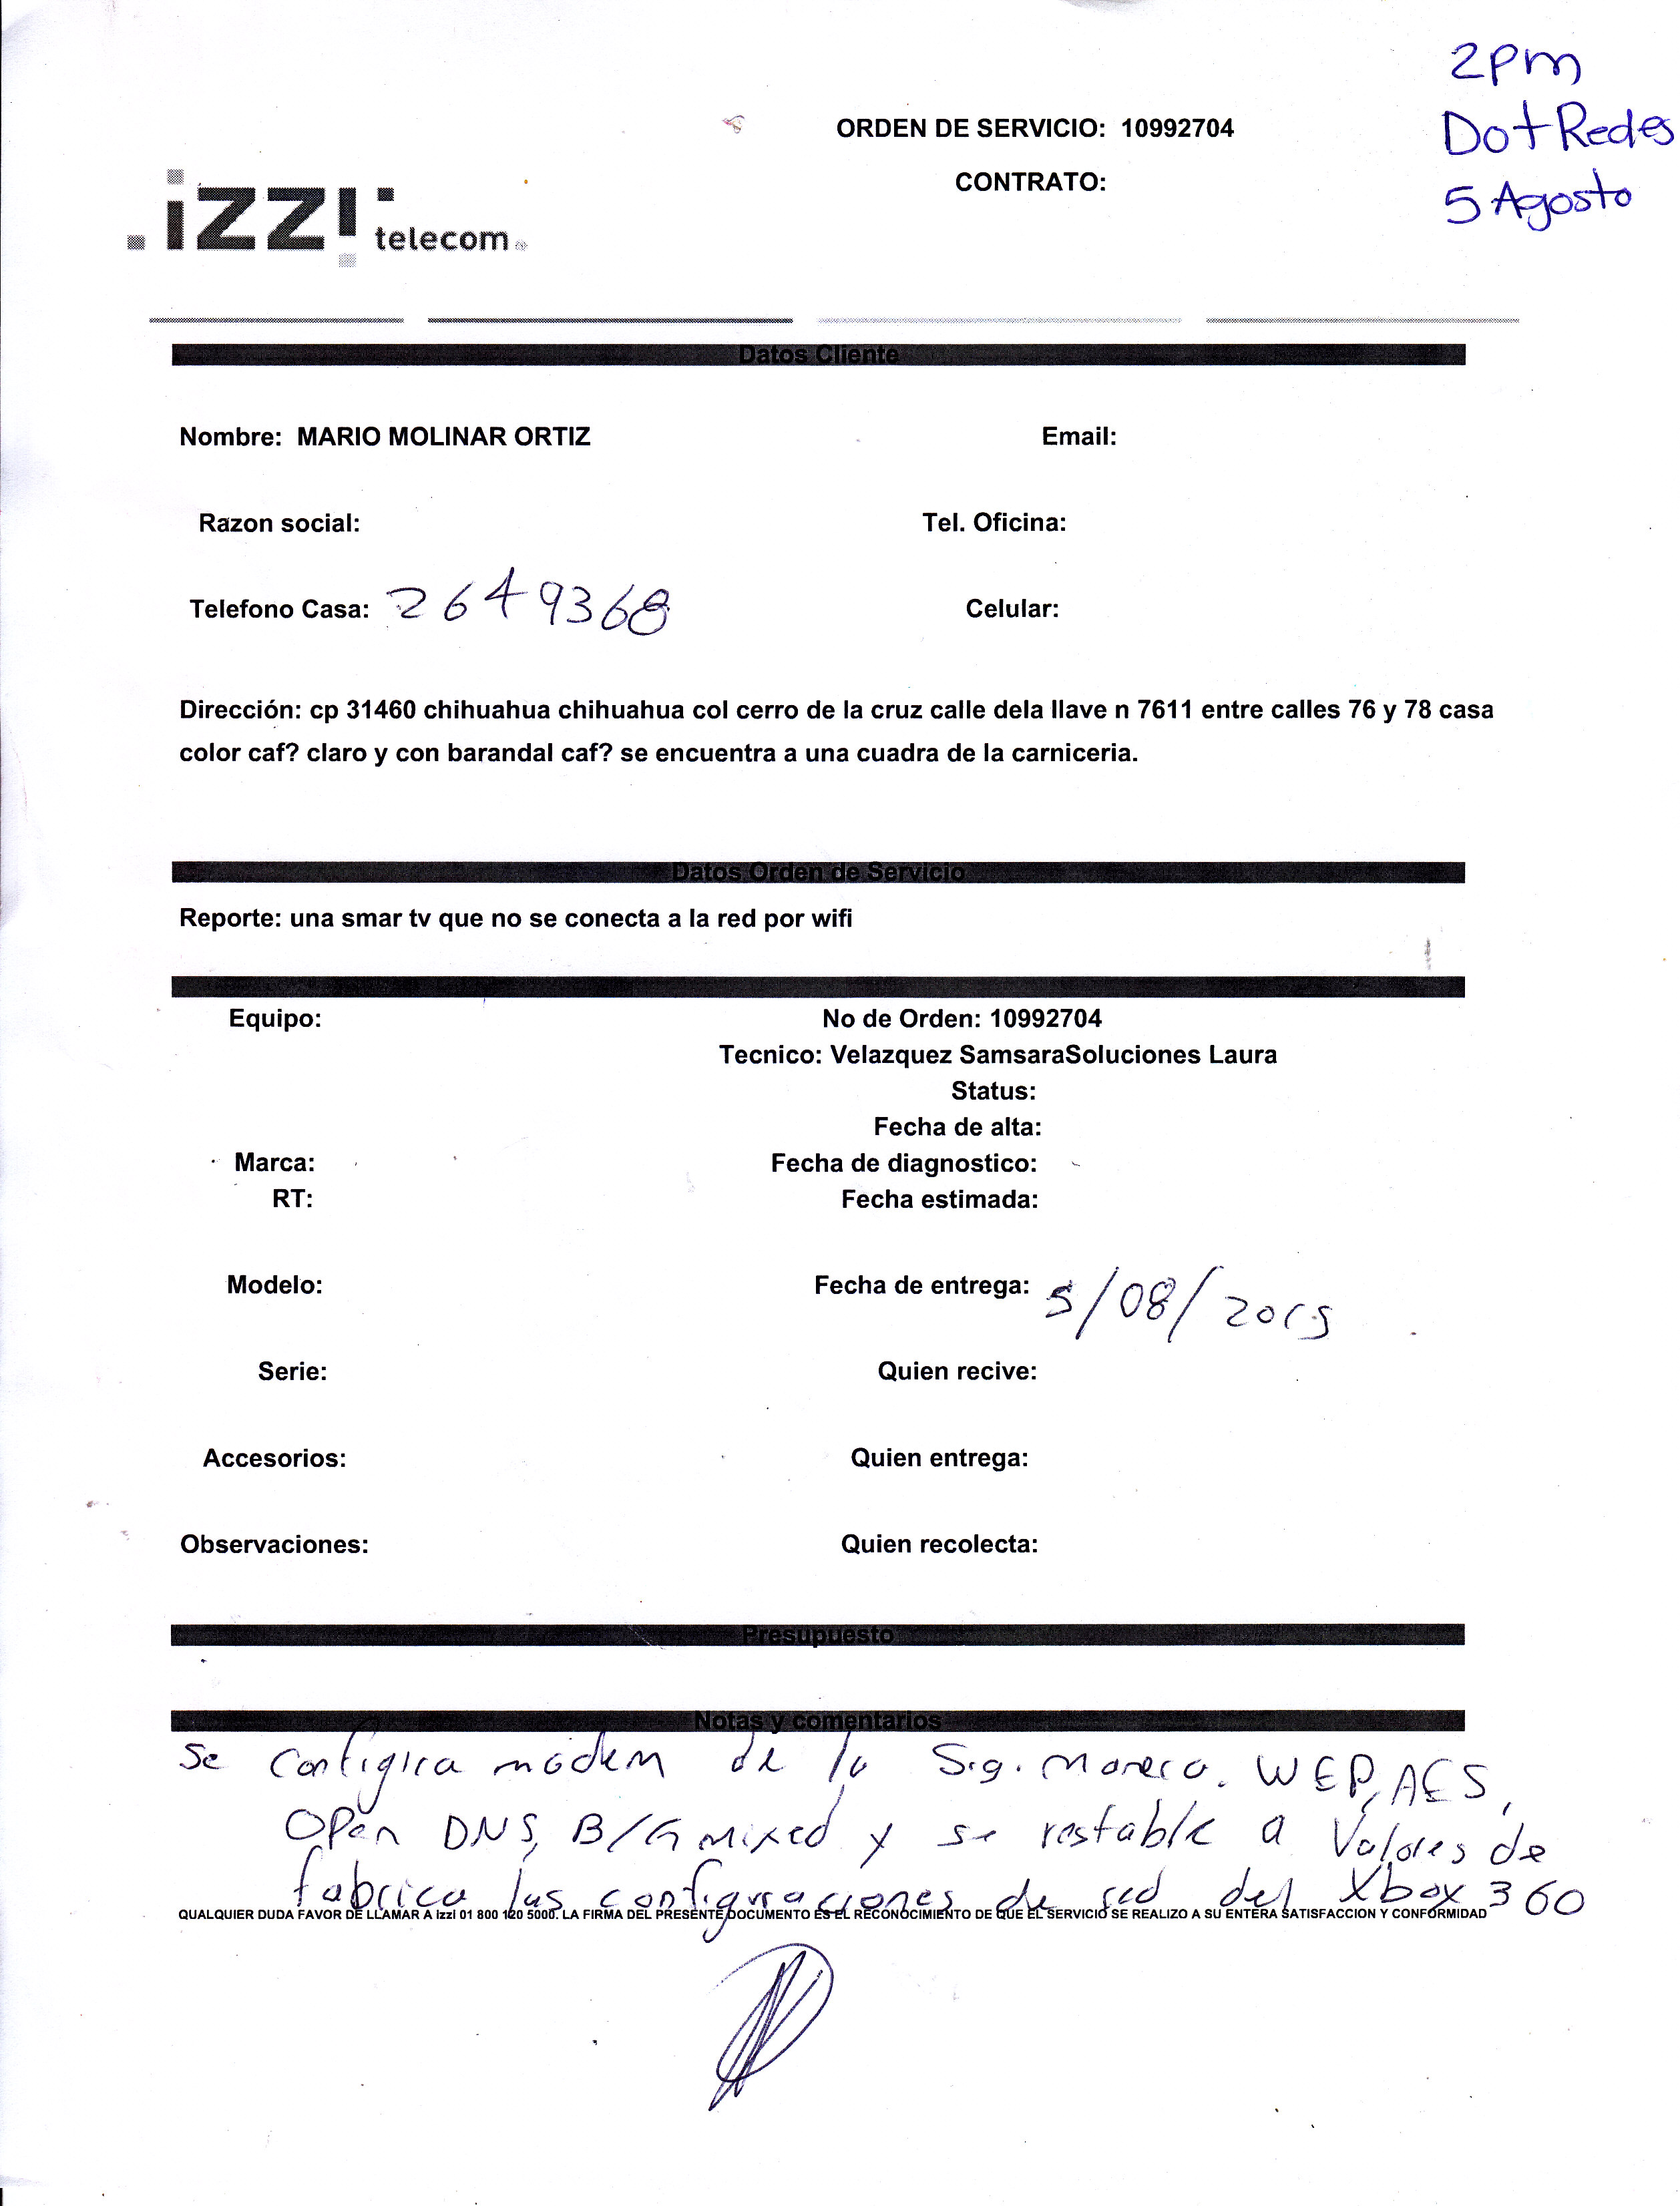 2pm
Dot Redes
5 Agosto
ORDEN DE SERVICIO: 10992704
CONTRATO:
izzi telecom
Datos Cliente
Nombre: MARIO MOLINAR ORTIZ Email:
Razon social: Tel. Oficina:
Telefono Casa: 2649368 Celular:
Dirección: cp 31460 chihuahua chihuahua col cerro de la cruz calle dela llave n 7611 entre calles 76 y 78 casa
color caf? claro y con barandal caf? se encuentra a una cuadra de la carniceria.
Datos Orden de Servicio
Reporte: una smar tv que no se conecta a la red por wifi
Equipo: No de Orden: 10992704
Tecnico: Velazquez SamsaraSoluciones Laura
Status:
Fecha de alta:
Marca: Fecha de diagnostico:
RT: Fecha estimada:
Modelo: Fecha de entrega: 5/08/2015
Serie: Quien recive:
Accesorios: Quien entrega:
Observaciones: Quien recolecta:
Presupuesto
Notas y comentarios
Se configura modem de la Sig. manera. WEP, AES,
Open DNS, B/G mixed y se restable a Valores de
fabrica las configuraciones de red del Xbox 360
QUALQUIER DUDA FAVOR DE LLAMAR A Izzi 01 800 120 5000. LA FIRMA DEL PRESENTE DOCUMENTO ES EL RECONOCIMIENTO DE QUE EL SERVICIO SE REALIZO A SU ENTERA SATISFACCION Y CONFORMIDAD